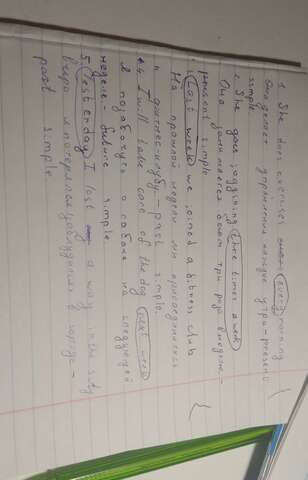 1. She does exercises every morning
она делает упражнения каждое утро - present
simple
2. She goes jogging three times a week
Она занимается бегом три раза в неделю -
present simple.
Last week we joined a fitness club
На прошлой недели мы присоединились
к фитнес-клубу - past simple.
4 I will take care of the dog next week
Я позабочусь о собаке на следующей
неделе - future simple
5. I lost a way in the sity
Вчера я в городе -
past simple.